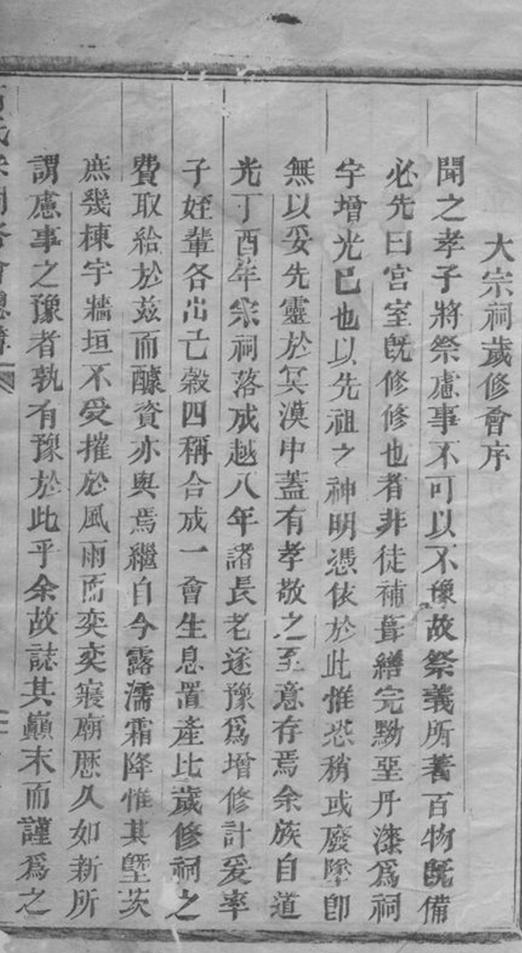 大宗祠歲修會序
聞之孝子將祭慮事不可以不豫故祭義所著百物旣備
必先曰宮室旣修修也者非徒補葺繕完黝堊丹漆爲祠
宇增光已也以先祖之神明憑依於此惟恐稍或廢墜卽
無以妥先靈於冥漠中蓋有孝敬之至意存焉余族自道
光丁酉年宗祠落成越八年諸長老遂豫爲增修計爰率
子姪輩各出己穀四稱合成一會生息置產比歲修祠之
費取給於茲而醵資亦與焉繼自今露濡霜降惟其塈茨
庶幾棟宇牆垣不受摧於風雨而奕奕寢廟歷久如新所
謂慮事之豫者孰有豫於此乎余故誌其巔末而謹爲之